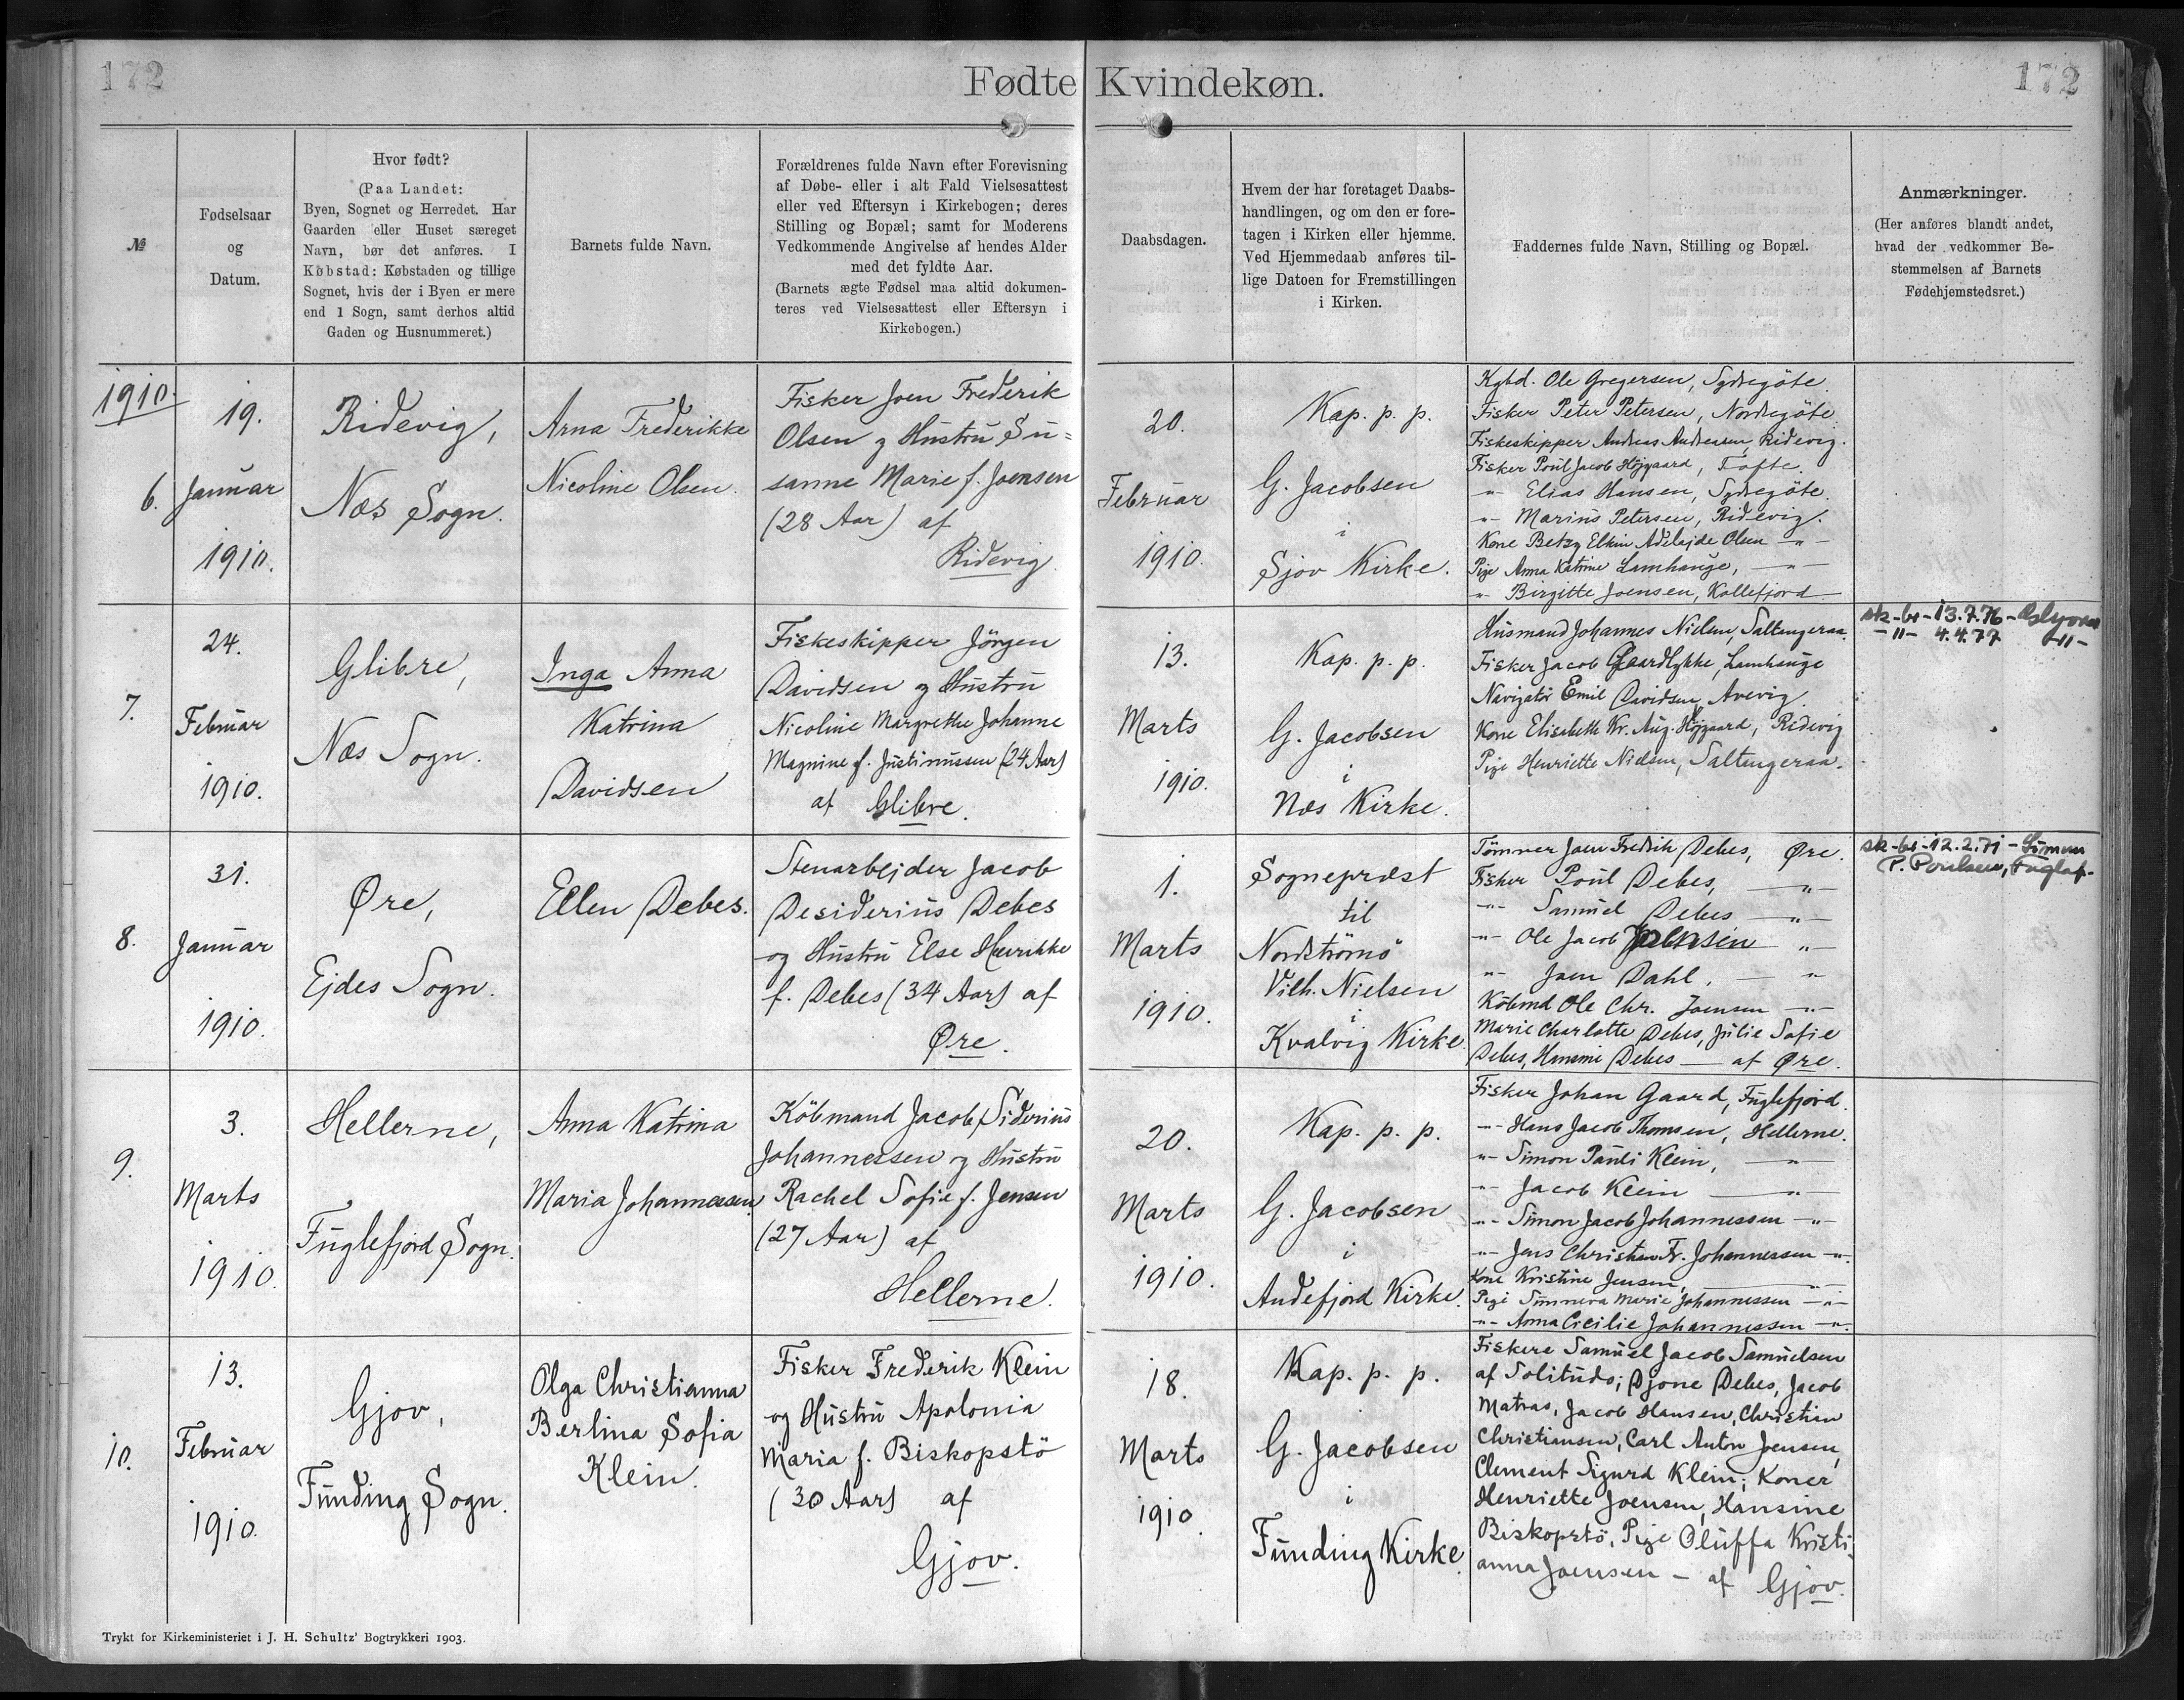 172
Fødte Kvindekøn.
172
№
Fødselsaar
og
Datum.
Hvor født?
(Paa Landet:
Byen, Sognet og Herredet. Har
Gaarden eller Huset særeget
Navn, bør det anføres. I
Købstad: Købstaden og tillige
Sognet, hvis der i Byen er mere
end 1 Sogn, samt derhos altid
Gaden og Husnummeret.)
Barnets fulde Navn.
Forældrenes fulde Navn efter Forevisning
af Døbe- eller i alt Fald Vielsesattest
eller ved Eftersyn i Kirkebogen; deres
Stilling og Bopæl; samt for Moderens
Vedkommende Angivelse af hendes Alder
med det fyldte Aar.
(Barnets ægte Fødsel maa altid dokumen-
teres ved Vielsesattest eller Eftersyn i
Kirkebogen.)
Daabsdagen.
Hvem der har foretaget Daabs-
handlingen, og om den er fore-
tagen i Kirken eller hjemme.
Ved Hjemmedaab anføres til-
lige Datoen for Fremstillingen
i Kirken.
Faddernes fulde Navn, Stilling og Bopæl.
Anmærkninger.
(Her anføres blandt andet,
hvad der vedkommer Be-
stemmelsen af Barnets
Fødehjemstedsret.)
1910.
6.
19.
Januar
1910.
Ridevig,
Næs Sogn.
Arna Frederikke
Nicoline Olsen.
Fisker Joen Frederik
Olsen og Hustru Su=
sanne Marie f. Joensen
(28 Aar) af
Ridevig.
20.
Februar
1910.
Kap. p. p.
G. Jacobsen
i
Sjov Kirke.
Kgbd. Ole Gregersen, Sydregöte.
Fisker Peter Petersen, Nordregöte.
Fiskeskipper Andreas Andreasen, Ridevig.
Fisker Poul Jacob Højgaard, Tofte.
-"- Elias Hansen, Sydregöte.
-"- Marius Petersen, Ridevig.
Kone Betzy Elkin Adelajde Olsen -"-
Pige Anna Katrine Lamhauge, -"-
-"- Birgitte Joensen, Kollefjord
7.
24.
Februar
1910.
Glibre,
Næs Sogn.
Inga Anna
Katrina
Davidsen
Fiskeskipper Jörgen
Davidsen og Hustru
Nicoline Margrethe Johanne
Magnine f. Justinussen (24 Aar)
af Glibre.
13.
Marts
1910.
Kap. p. p.
G. Jacobsen
i
Næs Kirke.
Husmand Johannes Nielsen, Saltangeraa.
Fisker Jacob Gaardlykke, Lamhauge
Navigatör Emil Davidsen, Avevig.
Kone Elisabeth Kr. Aug. Højgaard, Ridevig
Pige Henriette Nielsen, Saltangeraa.
sk-br-13.7.76-
-"- 4.4.77 -"-
8.
31.
Januar
1910.
Øre,
Ejdes Sogn.
Ellen Debes.
Stenarbejder Jacob
Desiderius Debes
og Hustru Else Henrikke
f. Debes (34 Aar) af
Øre.
1.
Marts
1910.
Sognepræst
til
Nordströmö
Vilh. Nielsen
i
Kvalvig Kirke
Tömrer Joen Fredrik Debes, Øre.
Fisker Poul Debes, -"-
-"- Samuel Debes -"-
-"- Ole Jacob Joensen -"-
-"- Joen Dahl, -"-
Köbmd Ole Chr. Joensen -"-
Marie Charlotte Debes, Julie Sofie
Debes, Hansine Debes - af Øre.
sk-br-12.2.71-Símun
P. Poulsen, Fuglaf.
9.
3.
Marts
1910.
Hellerne,
Fuglefjord Sogn.
Anna Katrina
Maria Johannessen.
Köbmand Jacob Siderius
Johannessen og Hustru
Rachel Sofie f. Jensen
(27 Aar) af
Hellerne.
20.
Marts
1910.
Kap. p. p.
G. Jacobsen
i
Andefjord Kirke.
Fisker Johan Gaard, Fuglefjord.
-"- Hans Jacob Thomsen, Hellerne.
-"- Simon Pauli Klein, -"-
-"- Jacob Klein -"-
-"- Simon Jacob Johannessen -"-
-"- Jens Christian Fr. Johannessen -"-
Kone Kristine Jensen, -"-
Pige Sunneva Marie Johannessen -"-
-"- Anna Cicilie Johannessen -"-
10.
13.
Februar
1910.
Gjov,
Funding Sogn.
Olga Christianna
Berlina Sofia
Klein.
Fisker Frederik Klein
og Hustru Apolonia
Maria f. Biskopstö
(30 Aar) af
Gjov.
18.
Marts
1910.
Kap. p. p.
G. Jacobsen
i
Funding Kirke.
Fiskere Samuel Jacob Samuelsen
af Solitudo; Djone Debes, Jacob
Matras, Jacob Hansen, Christian
Christiansen, Carl Anton Joensen,
Clement Sigurd Klein; Koner
Henriette Joensen, Hansine
Biskopstö, Pige Oluffa Kristi-
anna Joensen - af Gjov.
Trykt for Kirkeministeriet i J. H. Schultz' Bogtrykkeri 1903.